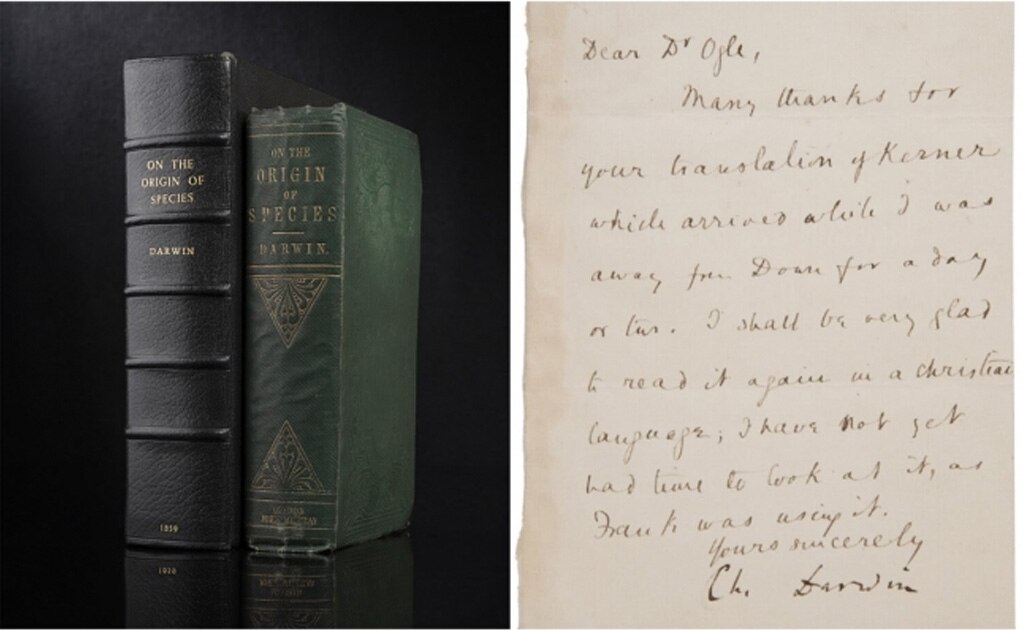 ON THE
ORIGIN OF
SPECIES
DARWIN
1859
ON THE
ORIGIN
OF
SPECIES
DARWIN.
LONDON
Dear Dr Ogle,
Many thanks for
your translation of Kerner
which arrived while I was
away from Down for a day
or two. I shall be very glad
to read it again in a christian
language; I have not yet
had time to look at it, as
Frank was using it.
Yours sincerely
Ch. Darwin